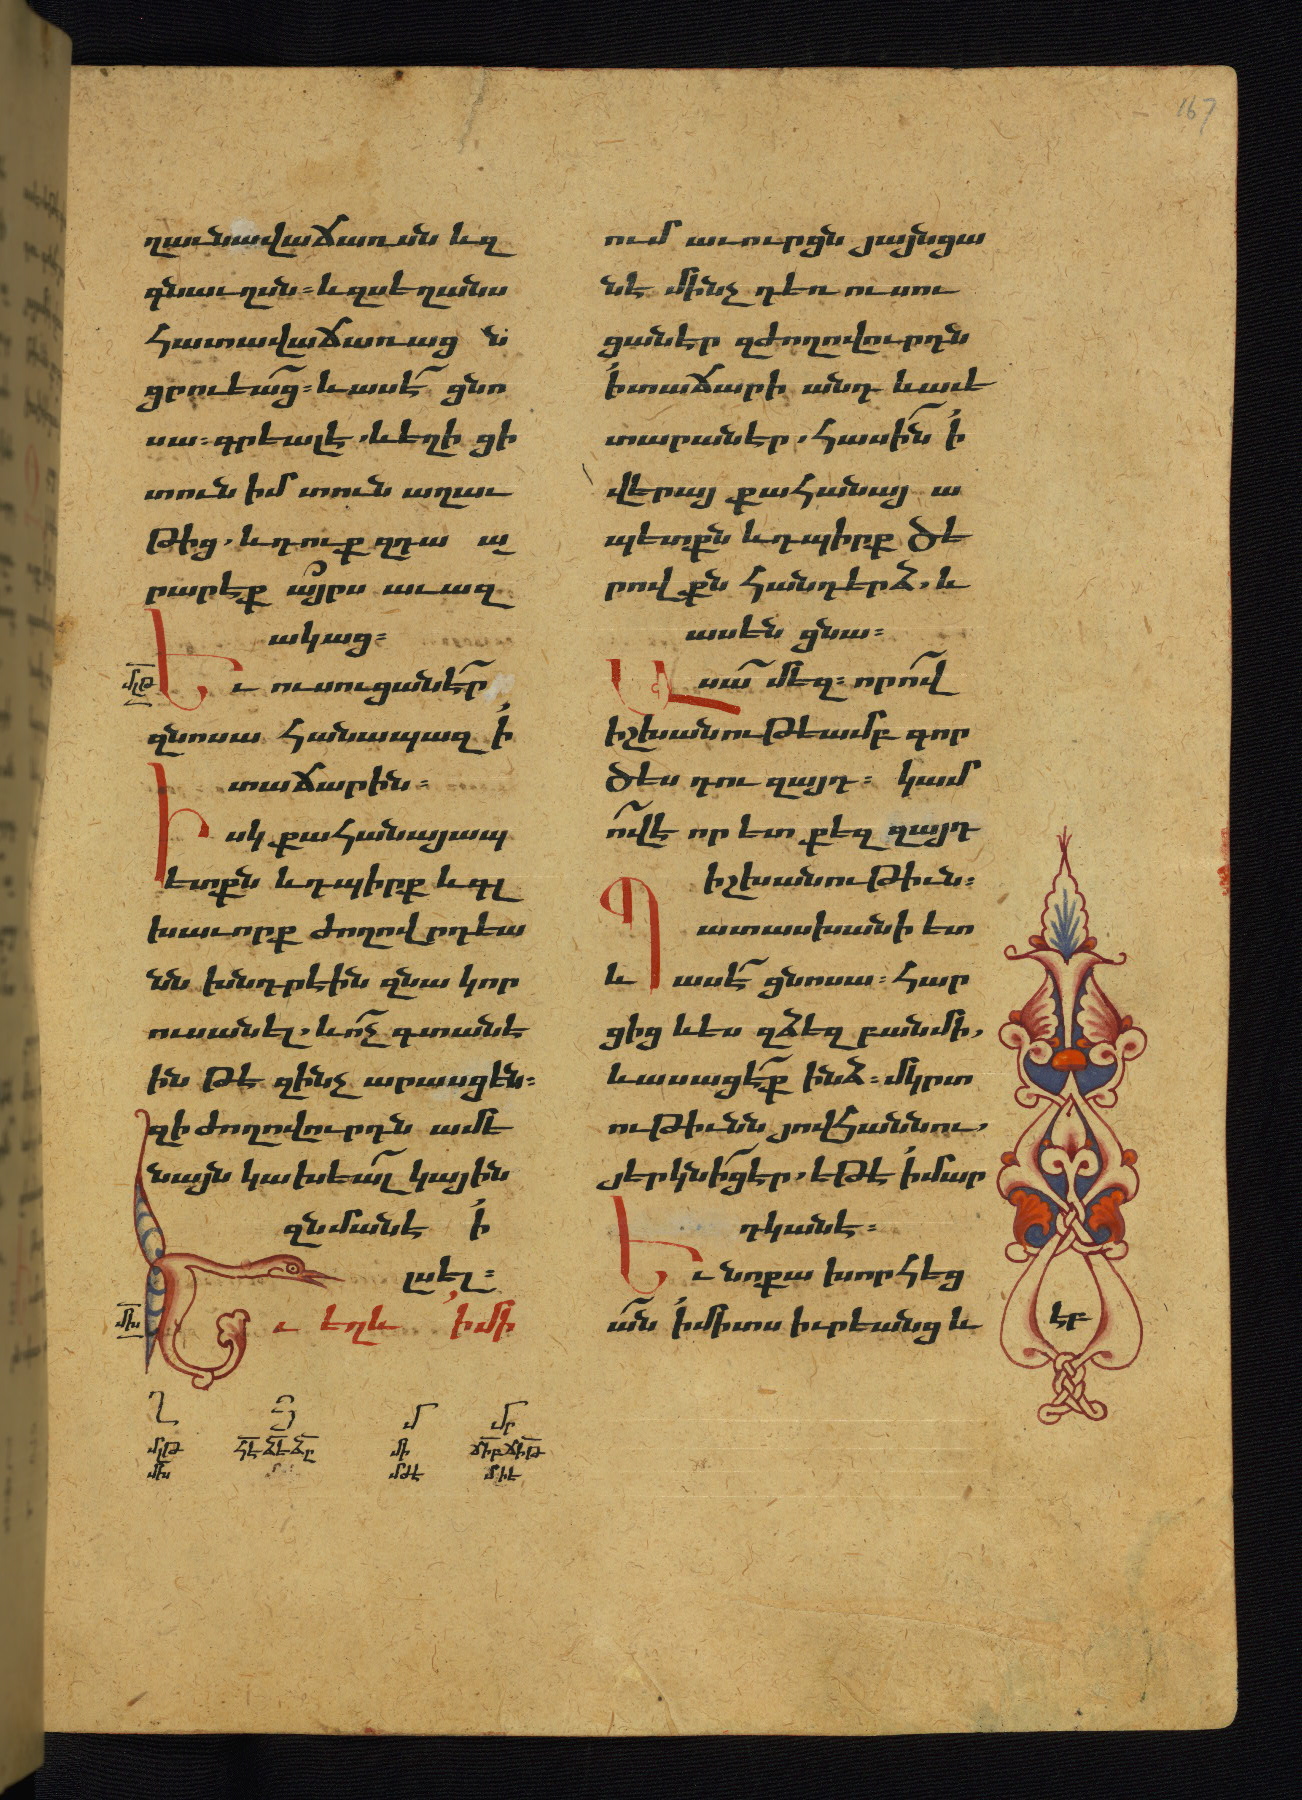 167
ղաւնավաճառսն և զ
գնաւղսն։ և զսեղանս
հատավաճառաց ն
ցրուեա՛ց։ և ասէ՛ ցնո
սա։ գրեալ է, և եղի ցի
տուն իմ տուն աղաւ
թից, և դուք զդա ա
րարէք այրս աւազ
ակաց։
մլթ
Եւ ուսուցանէ՛ր
զնոսա հանապազ ի՛
տաճարին։
Իսկ քահանայապ
ետքն և դպիրք և գլ
խաւորք ժողովրդեա
նն խնդրէին զնա կոր
ուսանել, և ո՛չ գտանե
ին թէ զինչ արասցեն։
զի ժողովուրդն ամե
նայն կախեա՛լ կային
զնմանէ ի՛
լսել։
մխ
Եւ եղև ի՛ մի
ում աւուրցն յայնցա
նէ մինչ դեռ ուսու
ցանէր զժողովուրդն
ի՛ տաճարի անդ և աւե
տարանէր, հասի՛ն ի՛
վերայ քահանայ ա
պետքն և դպիրք ծե
րովքն հանդերձ, և
ասեն ցնա։
Ասա՛ մեզ։ որո՛վ
իշխանութեամբ գոր
ծես դու զայդ։ կամ
ո՛վ է որ ետ քեզ զայդ
իշխանութիւն։
Պատասխանի ետ
և ասէ՛ ցնոսա։ հար
ցից և ես զձեզ բան մի,
և ասացէ՛ք ինձ։ մկրտ
ութիւնն յովհաննու,
յերկնի՛ց էր, եթէ ի՛ մար
դկանէ։
Եւ նոքա խորհեց
ա՛ն ի՛ միտս իւրեանց և
էբ
Ղ
մլթ
մխ
Յ
Մ
մի
Մր